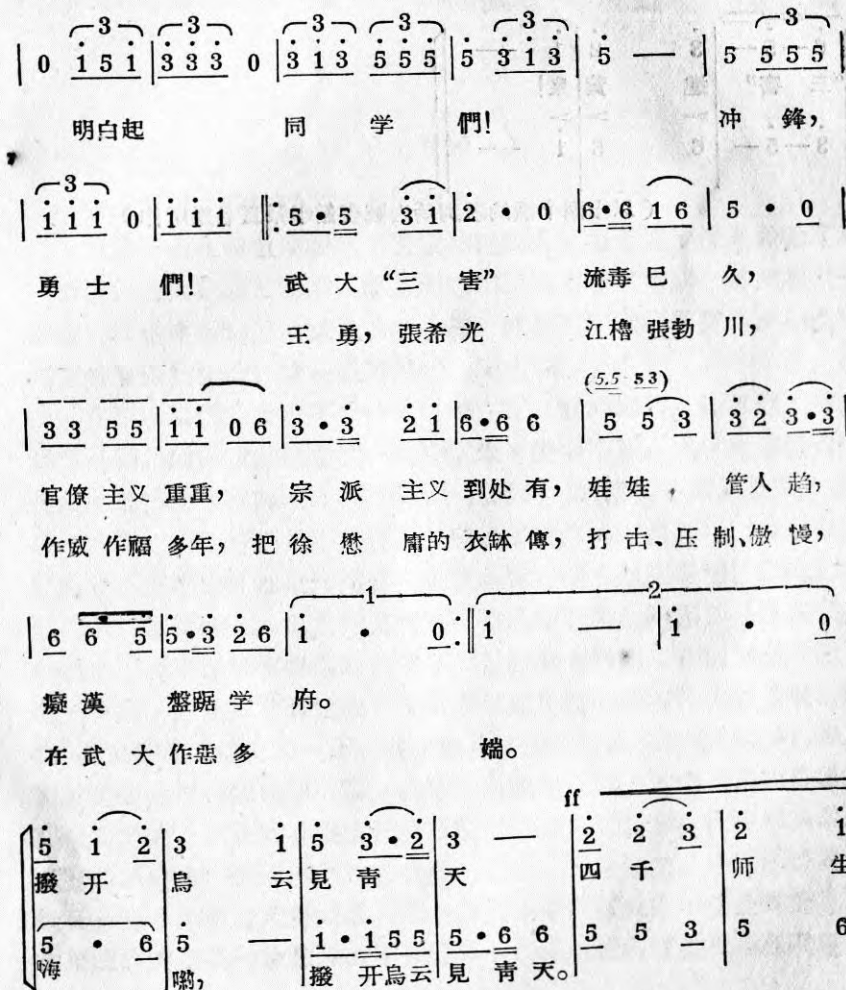 3 3 3 3 3
| 0 1 5 1 | 3 3 3 0 | 3 1 3 5 5 5 | 5 3 1 3 | 5 — | 5 5 5 5 |
明白起 同 学 們! 冲 鋒,
3
| 1 1 1 0 | 1 1 1 ‖: 5 • 5 3 i | 2 • 0 | 6 • 6 1 6 | 5 • 0 |
勇 士 們! 武 大 “三 害” 流毒 已 久,
王 勇, 張希 光 江櫓 張勃 川,
(5.5 5 3)
| 3 3 5 5 | 1 1 0 6 | 3 • 3 2 1 | 6 • 6 6 | 5 5 3 | 3 2 3 • 3 |
官僚 主义 重重, 宗 派 主义 到处 有, 娃娃, 管人 趋,
作威 作福 多年, 把 徐 懋 庸的 衣缽 傳, 打 击、压 制、傲 慢,
1 2
| 6 6 5 | 5 • 3 2 6 | 1 • 0 :‖ 1 — | 1 • 0
癡 漢 盤踞 学 府。
在 武 大 作惡 多 端。
ff
5 1 2 | 3 1 | 5 3 • 2 | 3 — | 2 2 3 | 2 1
搬 开 烏 云 見 青 天 四 千 师 生
5 • 6 | 5 — | 1 • 1 5 5 | 5 • 6 6 | 5 5 3 | 5 6
嗨 喲, 搬 开烏云 見 青 天。